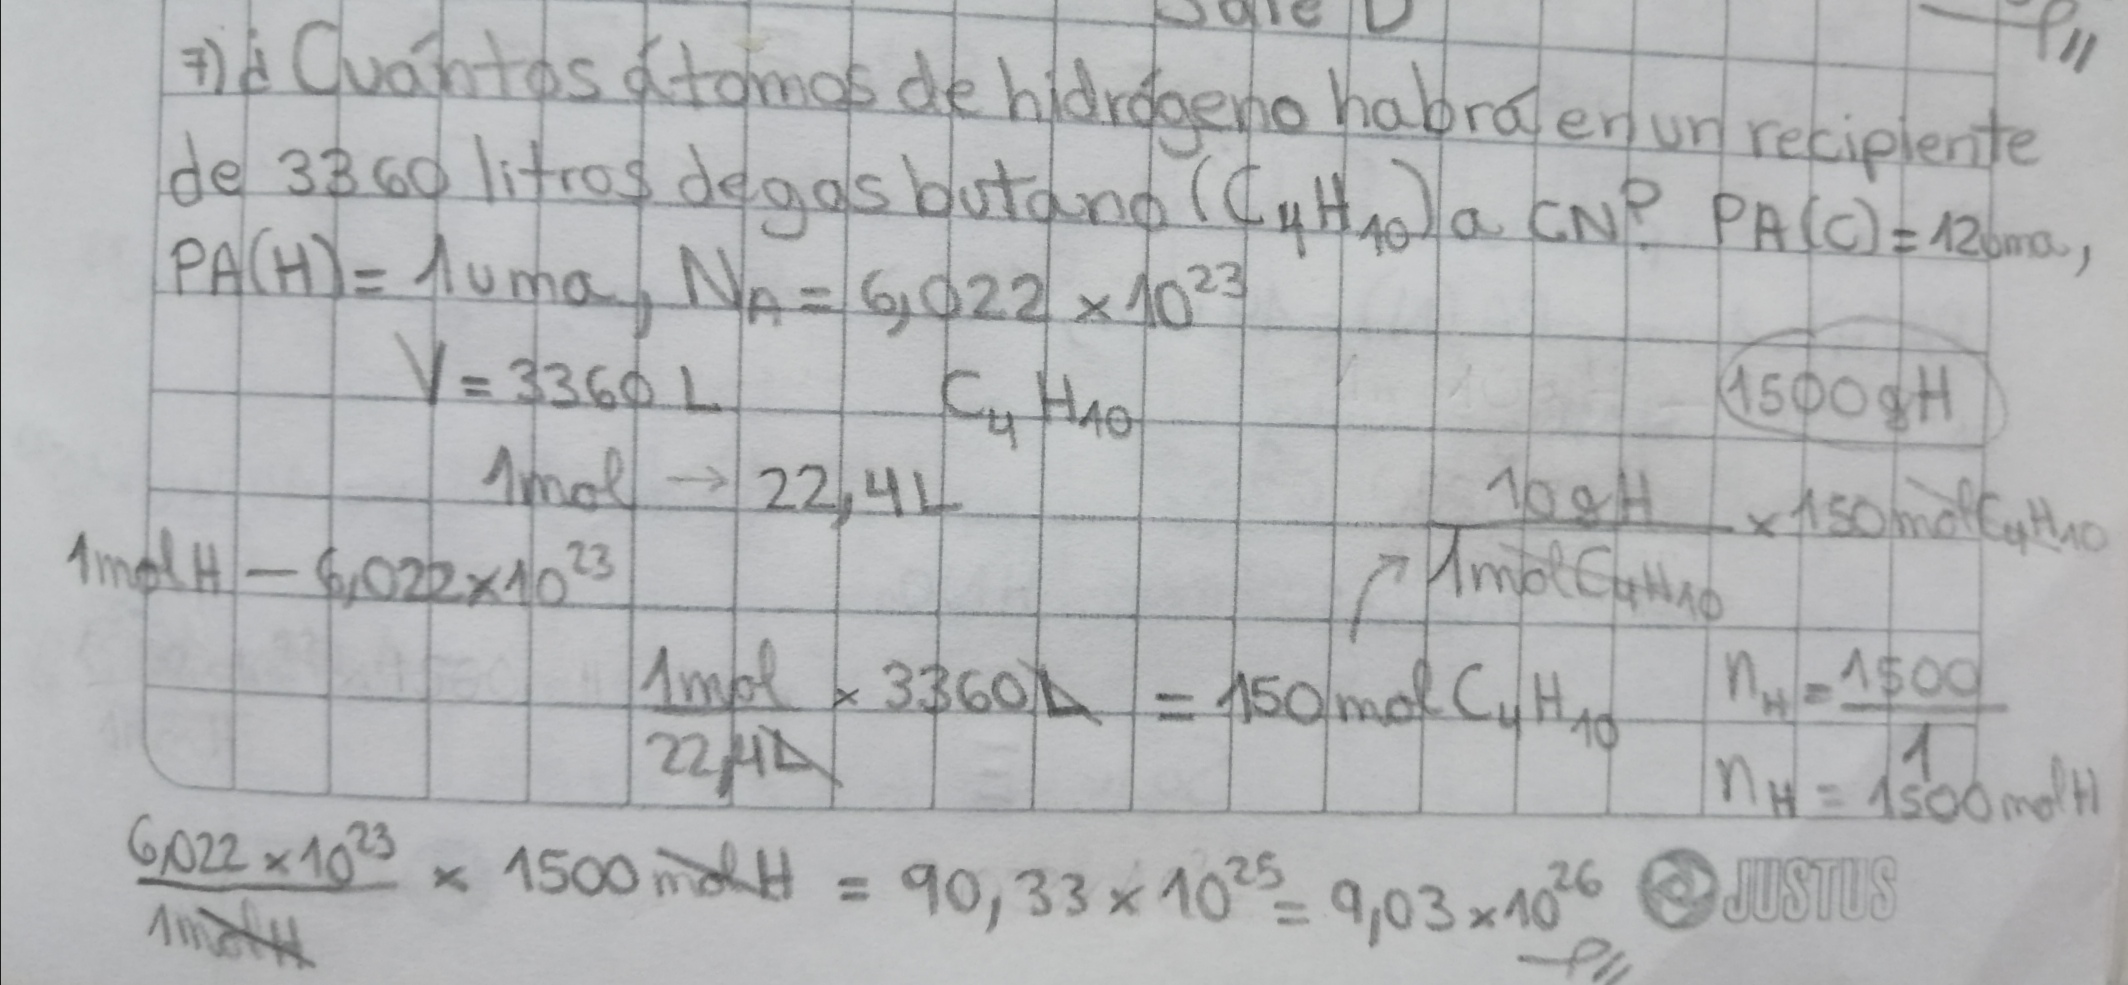 Sale D
7) ¿Cuántos átomos de hidrógeno habrá en un recipiente
de 3360 litros de gas butano (C₄H₁₀) a CN? PA(C)=12uma,
PA(H)= 1uma, N_A = 6,022 × 10²³
V = 3360 L C₄H₁₀ 1500gH
1mol → 22,4L 10gH / 1molC₄H₁₀ × 150molC₄H₁₀
1molH — 6,022×10²³
1mol / 22,4L × 3360L = 150molC₄H₁₀ n_H = 1500 / 1
n_H = 1500molH
6,022 × 10²³ / 1molH × 1500molH = 90,33 × 10²⁵ = 9,03 × 10²⁶
JUSTUS